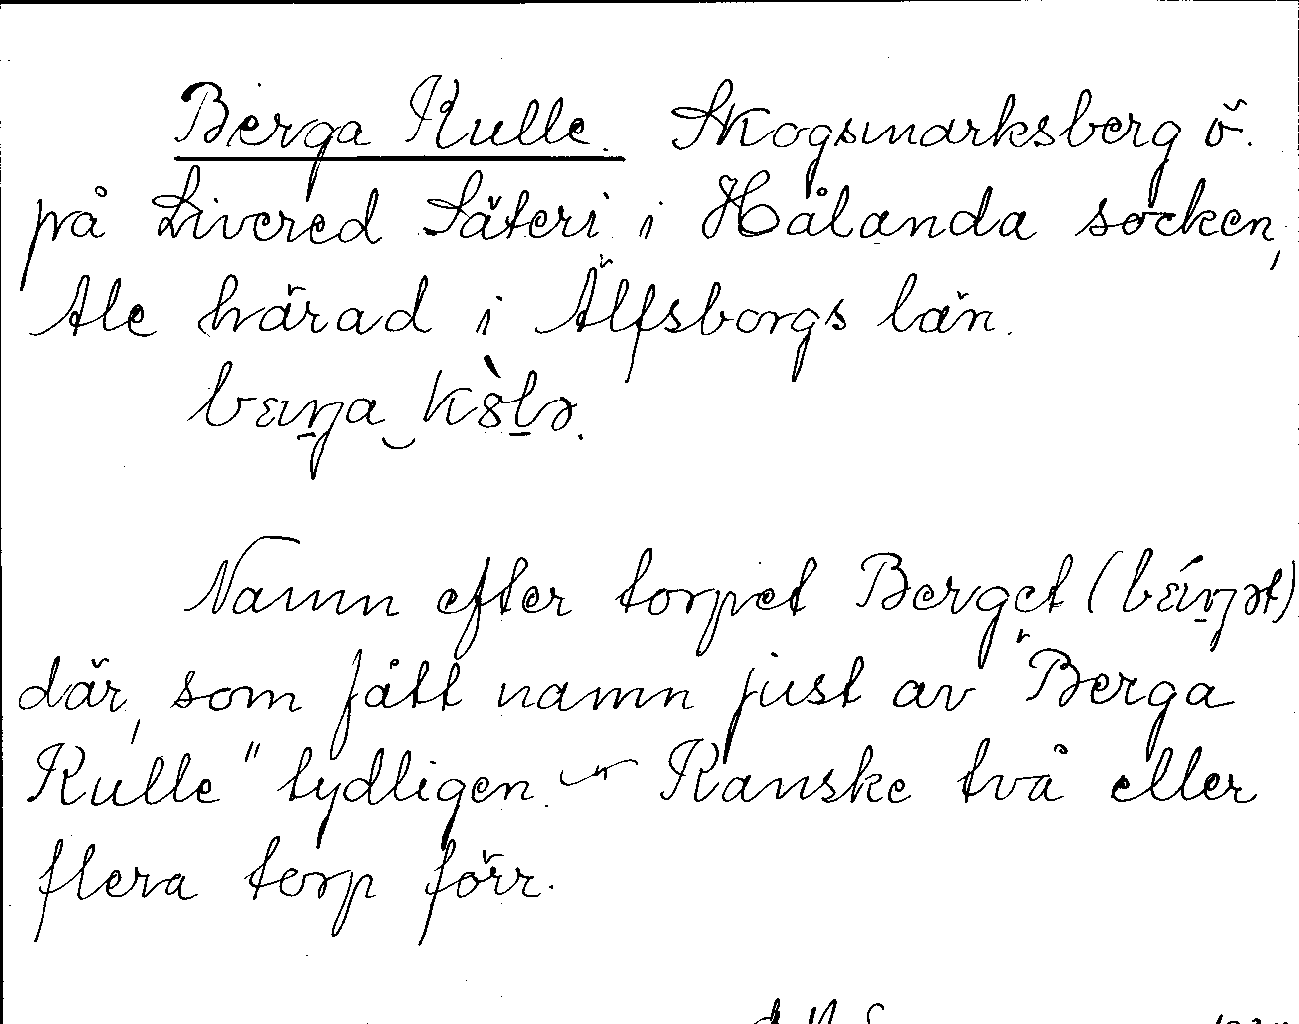 Berga Kulle. Skogsmarksberg ö.
på Livered Säteri i Hålanda socken,
Ale härad i Älfsborgs län.
Namn efter torpet Berget
där, som fått namn just av "Berga
Kulle" tydligen. - Kanske två eller
flera torp förr.